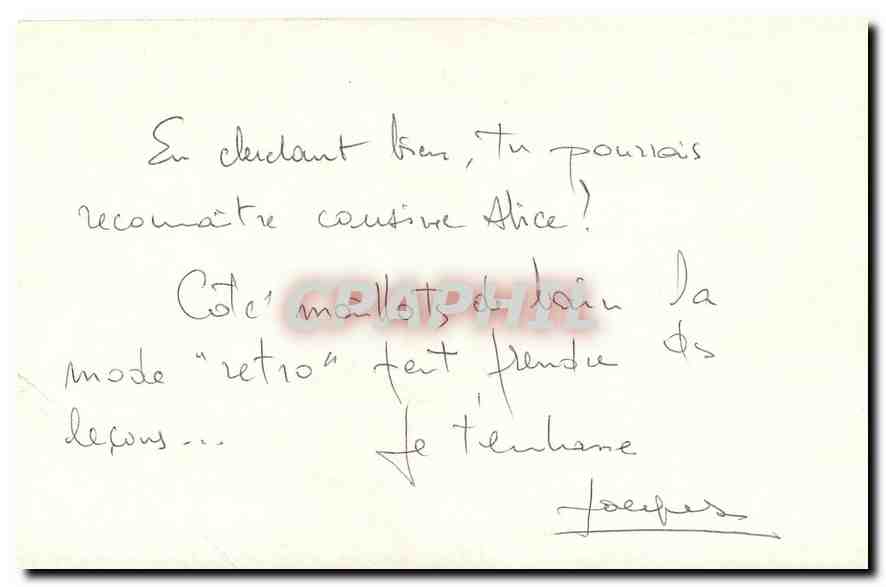 En cherchant bien, tu pourrais
reconnaître cousine Alice !
Côté maillots de bain la
mode "retro" peut prendre des
leçons...   Je t'embrasse
Jacques
CPAPHIL